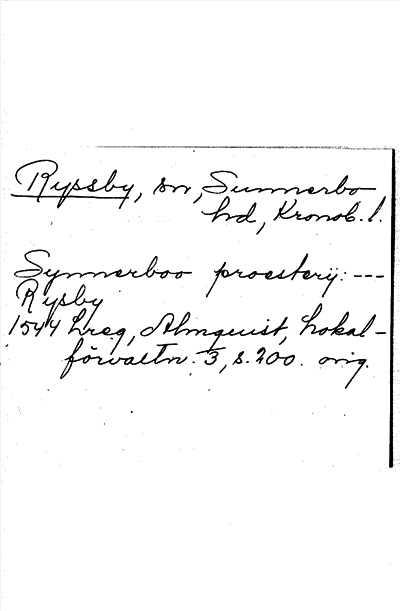 Ryssby, sn, Sunnerbo
hd, Kronob. l.
Synnerboo proesterij: ---
Rysby
1544 hreg, Almquist, Lokal-
förvaltn. 3, s. 200. orig.